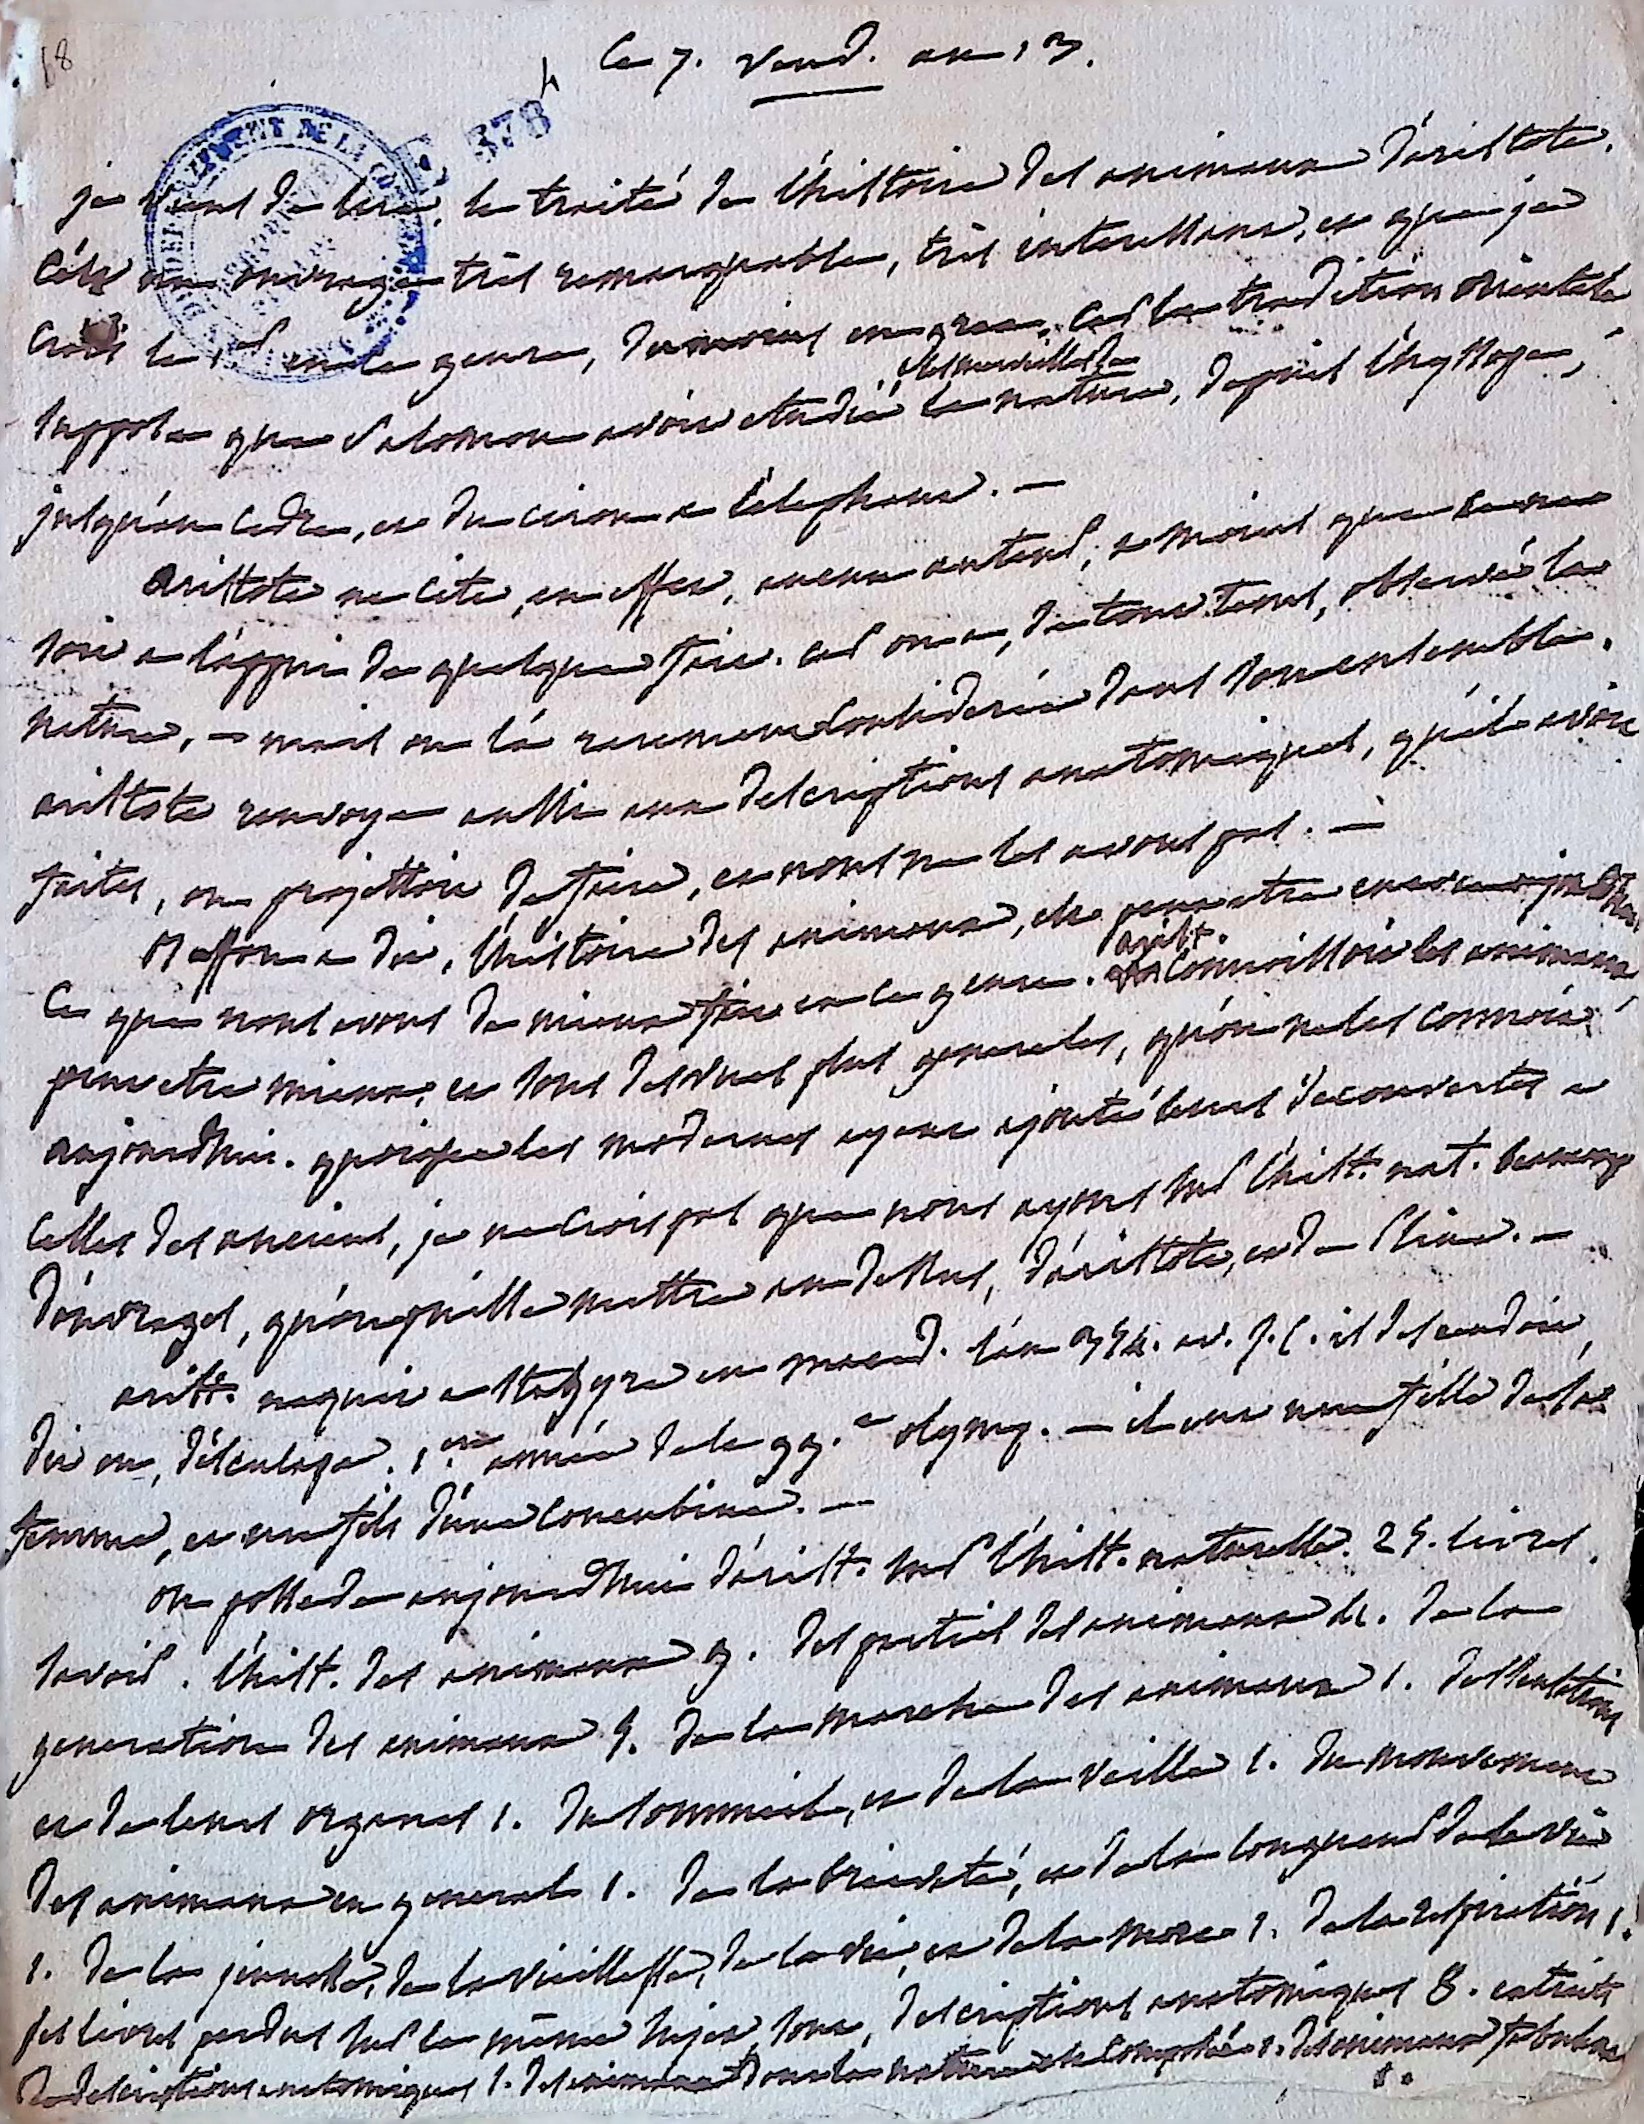 18
Ce 7. vend. an 13.
378
je viens de lire, le traité de l'histoire des animaux d'aristote.
c'est un ouvrage très remarquable, très interessant, et que je
crois le 1er en ce genre, du moins en grec. car la tradition orientale
suppose que Salomon avoit etudié les merveilles de la nature, depuis l'hyssope,
jusqu'au cedre, et du ciron a l'elephant. —
aristote ne cite, en effet, aucun auteur, a moins que ce ne
soit a l'appui de quelque fait. car on a, de tout tems, observé la
nature, — mais on l'a rarement considerée dans son ensemble.
aristote renvoye aussi aux descriptions anatomiques, qu'il avoit
faites, ou projettoit de faire, et nous ne les avons pas. —
Buffon a dit, l'histoire des animaux, est peut etre encore aujourd'hui
ce que nous avons de mieux fait en ce genre. arist. connoissoit les animaux
peut etre mieux, et sous des vues plus generales, qu'on ne les connoit
aujourdhui. quoique les modernes ayent ajouté leurs decouvertes a
celles des anciens, je ne crois pas que nous ayons sur l'hist. nat. beaucoup
d'ouvrages, qu'on puisse mettre au dessus, d'aristote, et de Pline. —
arist. naquit a Stagyre en maced. l'an 384. av. J. C. il descendoit,
dit on, d'esculape. 1ere année de la 99.e olymp. — il eut une fille de sa
femme, et un fils d'une concubine. —
on possede aujourdhui d'arist. sur l'hist. naturelle. 25. livres.
savoir. l'hist. des animaux 9. des parties des animaux 4. de la
generation des animaux 5. de la marche des animaux 1. des sensations
et de leurs organes 1. du sommeil, et de la veille 1. du mouvement
des animaux en general 1. de la brieveté, et de la longueur de la vie
1. de la jeunesse, de la vieillesse, de la vie, et de la mort 1. de la respiration 1.
les livres perdus sur le même sujet sont, descriptions anatomiques 8. extraits
de descriptions anatomiques 1. des animaux dont la nature est composée 1. des animaux fabuleux
1.